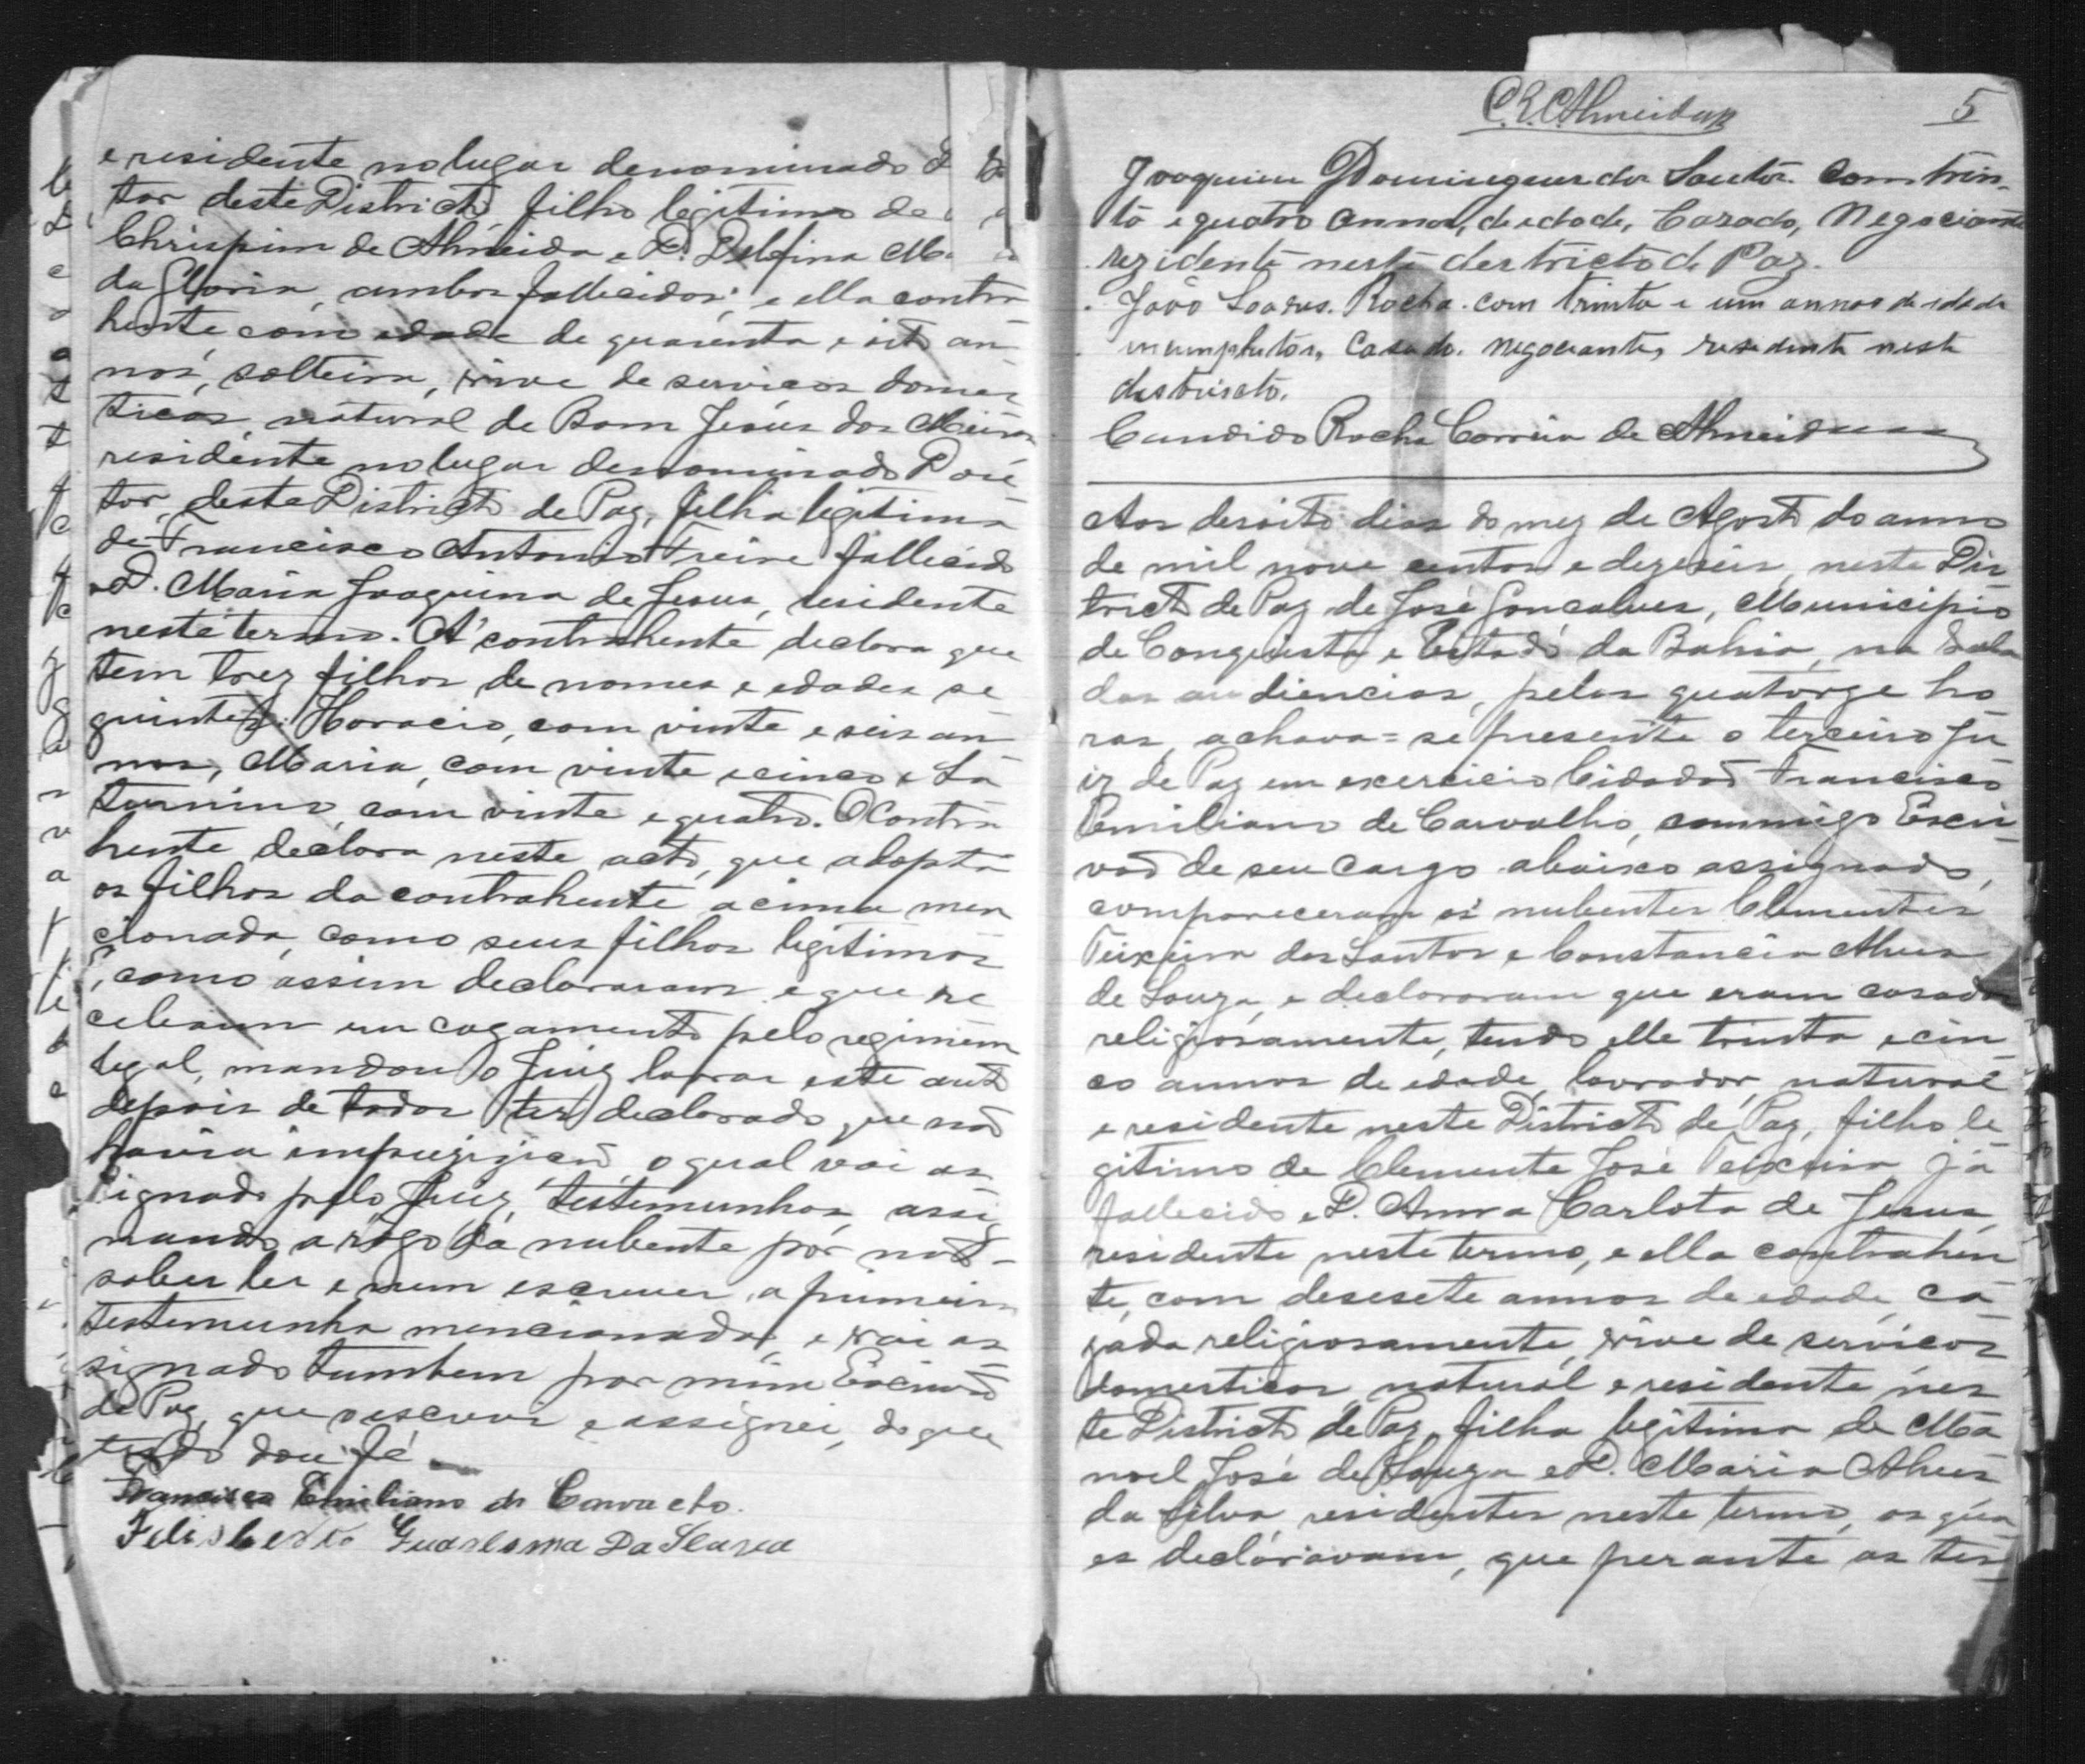 e residente no lugar denominado P
tor deste Districto, filho legitimo de
Chrispim de Almeida e D. Delfina Ma
da Gloria, ambos fallecidos; e ella contra
hente com edade de quarenta e oito an
nos, solteira, vive de serviços domes
ticos, natural de Bom Jesús dos Meiras
residente no lugar denominado
tor, deste Districto de Paz, filha legitima
de Francisco Antonio Freire fallecido
e D. Maria Joaquina de Jesus, residente
neste termo. A contrahente declara que
tem trez filhos de nomes e edades se
guintes: Horacio, com vinte e seis an
nos, Maria, com vinte e cinco e Sa
turnino, com vinte e quatro. O Contra
hente declara neste acto, que adopta
os filhos da contrahente acima men
cionada, como seus filhos legitimos
e, como assim declararam e que re
cebiam em cazamento pelo regimem
legal, mandou o Juiz lavrar este auto
depois de todos ter declarado que não
havia o qual vai as
signado pelo Juiz, testemunhas, assig
nando a rôgo da nubente por não
saber ler e nem escrever, a primeira
testemunha mencionada, e vai as
signado tambem por mim Escrivão
de Paz, que o escrevi e assignei, do que
tudo dou fé
Francisco Emiliano de Carvalho.
Felisberto Da
C. R. C. Almeida 5
Joaquim Domingues dos Santos. Com trin
ta e quatro annos, de edade, Cazado, Negociante
rezidente neste destricto de Paz.
João Soares Rocha. com trinta e um annos de idade
incumpletos, Casado. negociante, residente neste
destricto.
Candido Rocha Corrêia de Almeida
Aos desoito dias do mez de Agosto do anno
de mil nove centos e dezeseis, neste Dis
tricto de Paz de José Gonçalves, Municipio
de Conquista e Estado da Bahia, na Sala
das audiencias, pelas quatorze ho
ras, achava-se presente o terceiro Ju
iz de Paz em excercicio Cidadão Francisco
Emiliano de Carvalho, commigo Escri
vão de seu cargo abaixo assignado,
compareceram os nubentes Clementes
Teixeira dos Santos e Constancia Alves
de Souza, e declararam que eram casados
religiosamente, tendo elle trinta e cin
co annos de edade, lavrador, natural
e residente neste Districto de Paz, filho le
gitimo de Clemente José Teixeira já
fallecido e D. Anna Carlota de Jesus,
residente neste termo, e ella contrahen
te, com desesete annos de edade, ca
zada religiosamente, vive de serviços
domesticos, natural e residente nes
te Districto de Paz, filha legitima de Ma
noel José de Souza e D. Maria Alves
da Silva, residentes neste termo, os qua
es declararam, que perante as tes